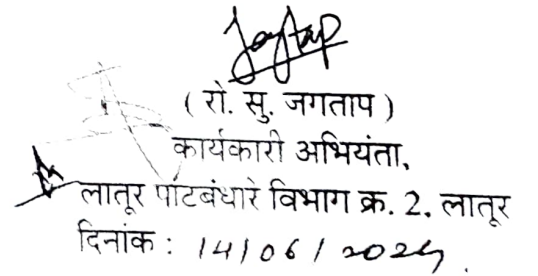 ( रो. सु. जगताप )
कार्यकारी अभियंता,
लातूर पाटबंधारे विभाग क्र. 2, लातूर
दिनांक : 14/06/2024